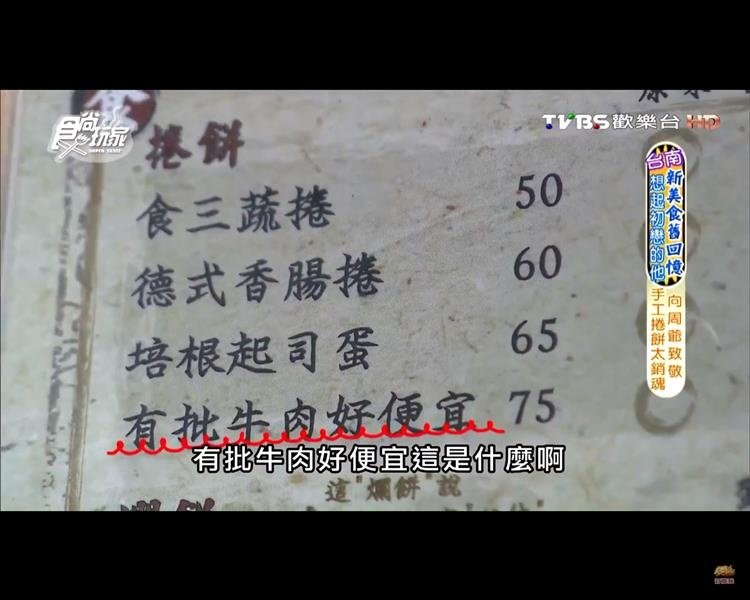 食尚玩家
SUPER TASTE
TVBS歡樂台 HD
捲餅
食三蔬捲 50
德式香腸捲 60
培根起司蛋 65
有批牛肉好便宜 75
台南新美食舊回憶
想起初戀的他
向周爺致敬
手工捲餅太銷魂
有批牛肉好便宜這是什麼啊
這"爛餅"說